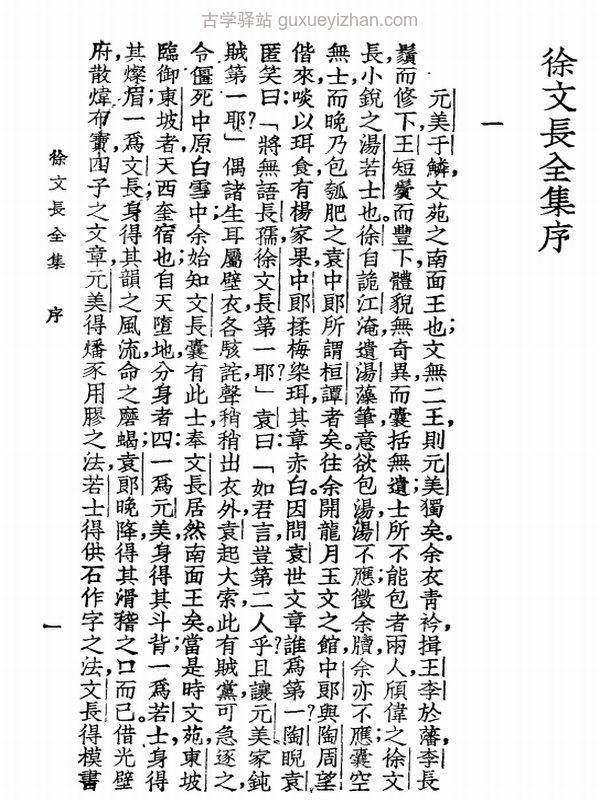 古学驿站 guxueyizhan.com
徐文長全集序
一
元美于鱗,文苑之南面王也;文無二王,則元美獨矣。余衣青衿,揖王李於藩,李長
鬚而修下,王短鬢而豐下,體貌無奇異,而囊括無遺士,所不能包者兩人,頎偉之徐文
長,小銳之湯若士也。徐自詭江淹,遺湯藻筆,意欲包湯,湯不應;徵余牘,余亦不應;囊空
無士,而晚乃包瓠肥之袁中郎,所謂桓譚者矣。往余開龍月玉文之館,中郎與陶周望
偕來,啖以珥食,有楊家果,中郎揉梅染珥,其章赤白。因問袁世文章誰爲第一?陶睨袁
匿笑曰:「將無語長孺徐文長第一耶?」袁曰:「如君言,豈第二人乎?且讓元美家鈍
賊第一耶?」偶諸生耳屬壁衣,各駭詫聲稍稍出衣外,袁起大索,此有賊黨,可急逐之,
令僵死中原白雪中。余始知文長囊有此士,奉文長居然南面王矣。當是時,文苑東坡
臨御,東坡者,天西奎宿也,自天墮地,分身者四:一爲元美,身得其斗背;一爲若士,身得
其燦眉;一爲文長,身得其韻之風流,命之磨蝎;袁郎晚降,得其滑稽之口而已。借光壁
府,散煒布寶,四子之文章,元美得燔豕用膠之法,若士得供石作字之法,文長得模書
徐文長全集 序
一